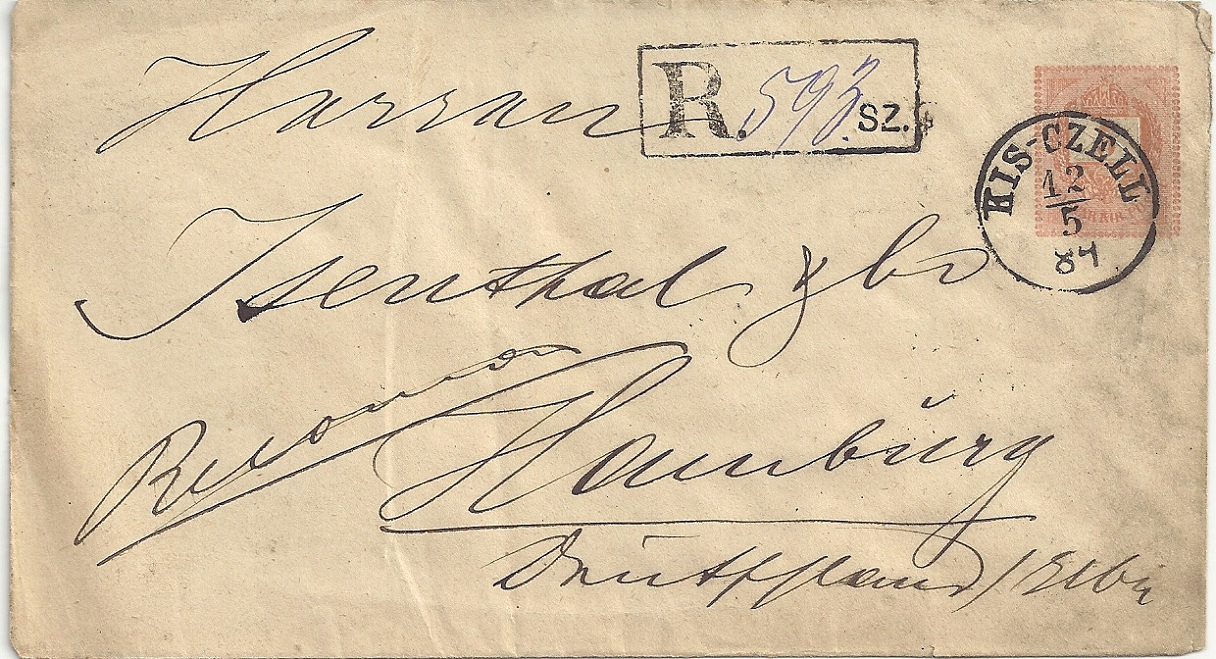 Herren
R. 593 SZ.
KIS-CZELL
12/5
84
Isenthal & Co
Recom
Hamburg
Deutschland / Elbe